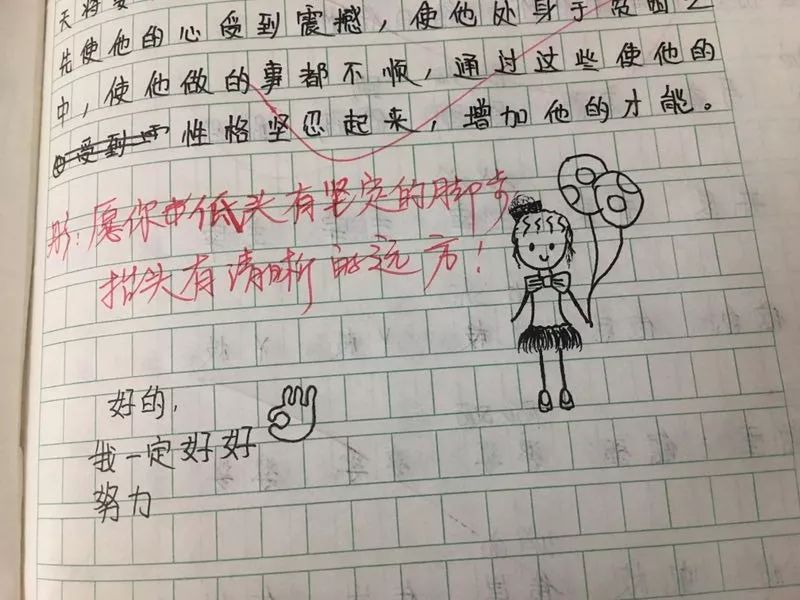 天将
先使他的心受到震撼，使他处身于贫困之
中，使他做的事都不顺，通过这些使他的
性格坚忍起来，增加他的才能。
彤：愿你低头有坚定的脚步
抬头有清晰的远方！
好的，
我一定好好
努力